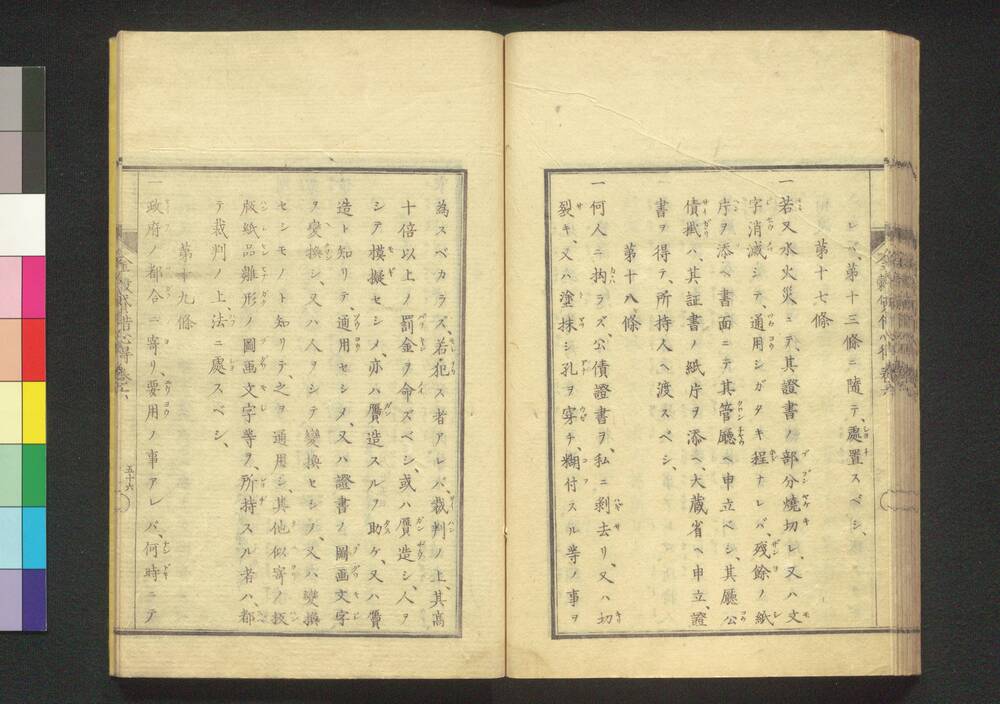 レバ、第十三條ニ隨テ、處置スベシ、
第十七條
一若又水火災ニテ、其證書ノ部分燒切レ、又ハ文
字消滅シテ、通用シガタキ程ナレバ、殘餘ノ紙
序ヲ添ヘ書面ニテ其管廳ヘ申立ベシ、其廳公
債掛ハ、其証書ノ紙片ヲ添ヘ、大蔵省ヘ申立、證
書ヲ得テ、所持人ヘ渡スベシ、
第十八條
一何人ニ拘ラズ、公債證書ヲ、私ニ剥去リ、又ハ切
裂キ、又ハ塗抹シ孔ヲ穿チ、糊付スル等ノ事ヲ
為スベカラズ、若犯ス者アレバ、裁判ノ上、其高
十倍以上ノ罰金ヲ命ズベシ、或ハ贋造シ、人ヲ
シテ模擬セシメ、亦ハ贋造スルヲ助ケ、又ハ贋
造ト知リテ、通用セシメ、又ハ證書ノ圖画文字
ヲ變換シ、又ハ人ヲシテ變換セシメ、又ハ變換
セシモノト知リテ、之ヲ通用シ、其他似寄ノ板
版紙品雛形ノ圖画文字等ヲ、所持スル者ハ、都
テ裁判ノ上、法ニ處スベシ、
第十九條
一政府ノ都合ニ寄リ、要用ノ事アレバ、何時ニテ
五十六